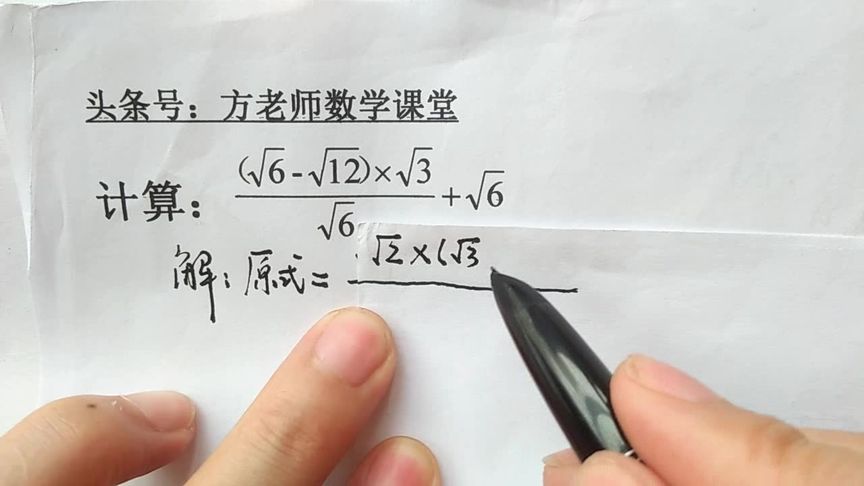 头条号：方老师数学课堂
计算： (√6-√12)×√3 / √6 +√6
解：原式= √2×(√3